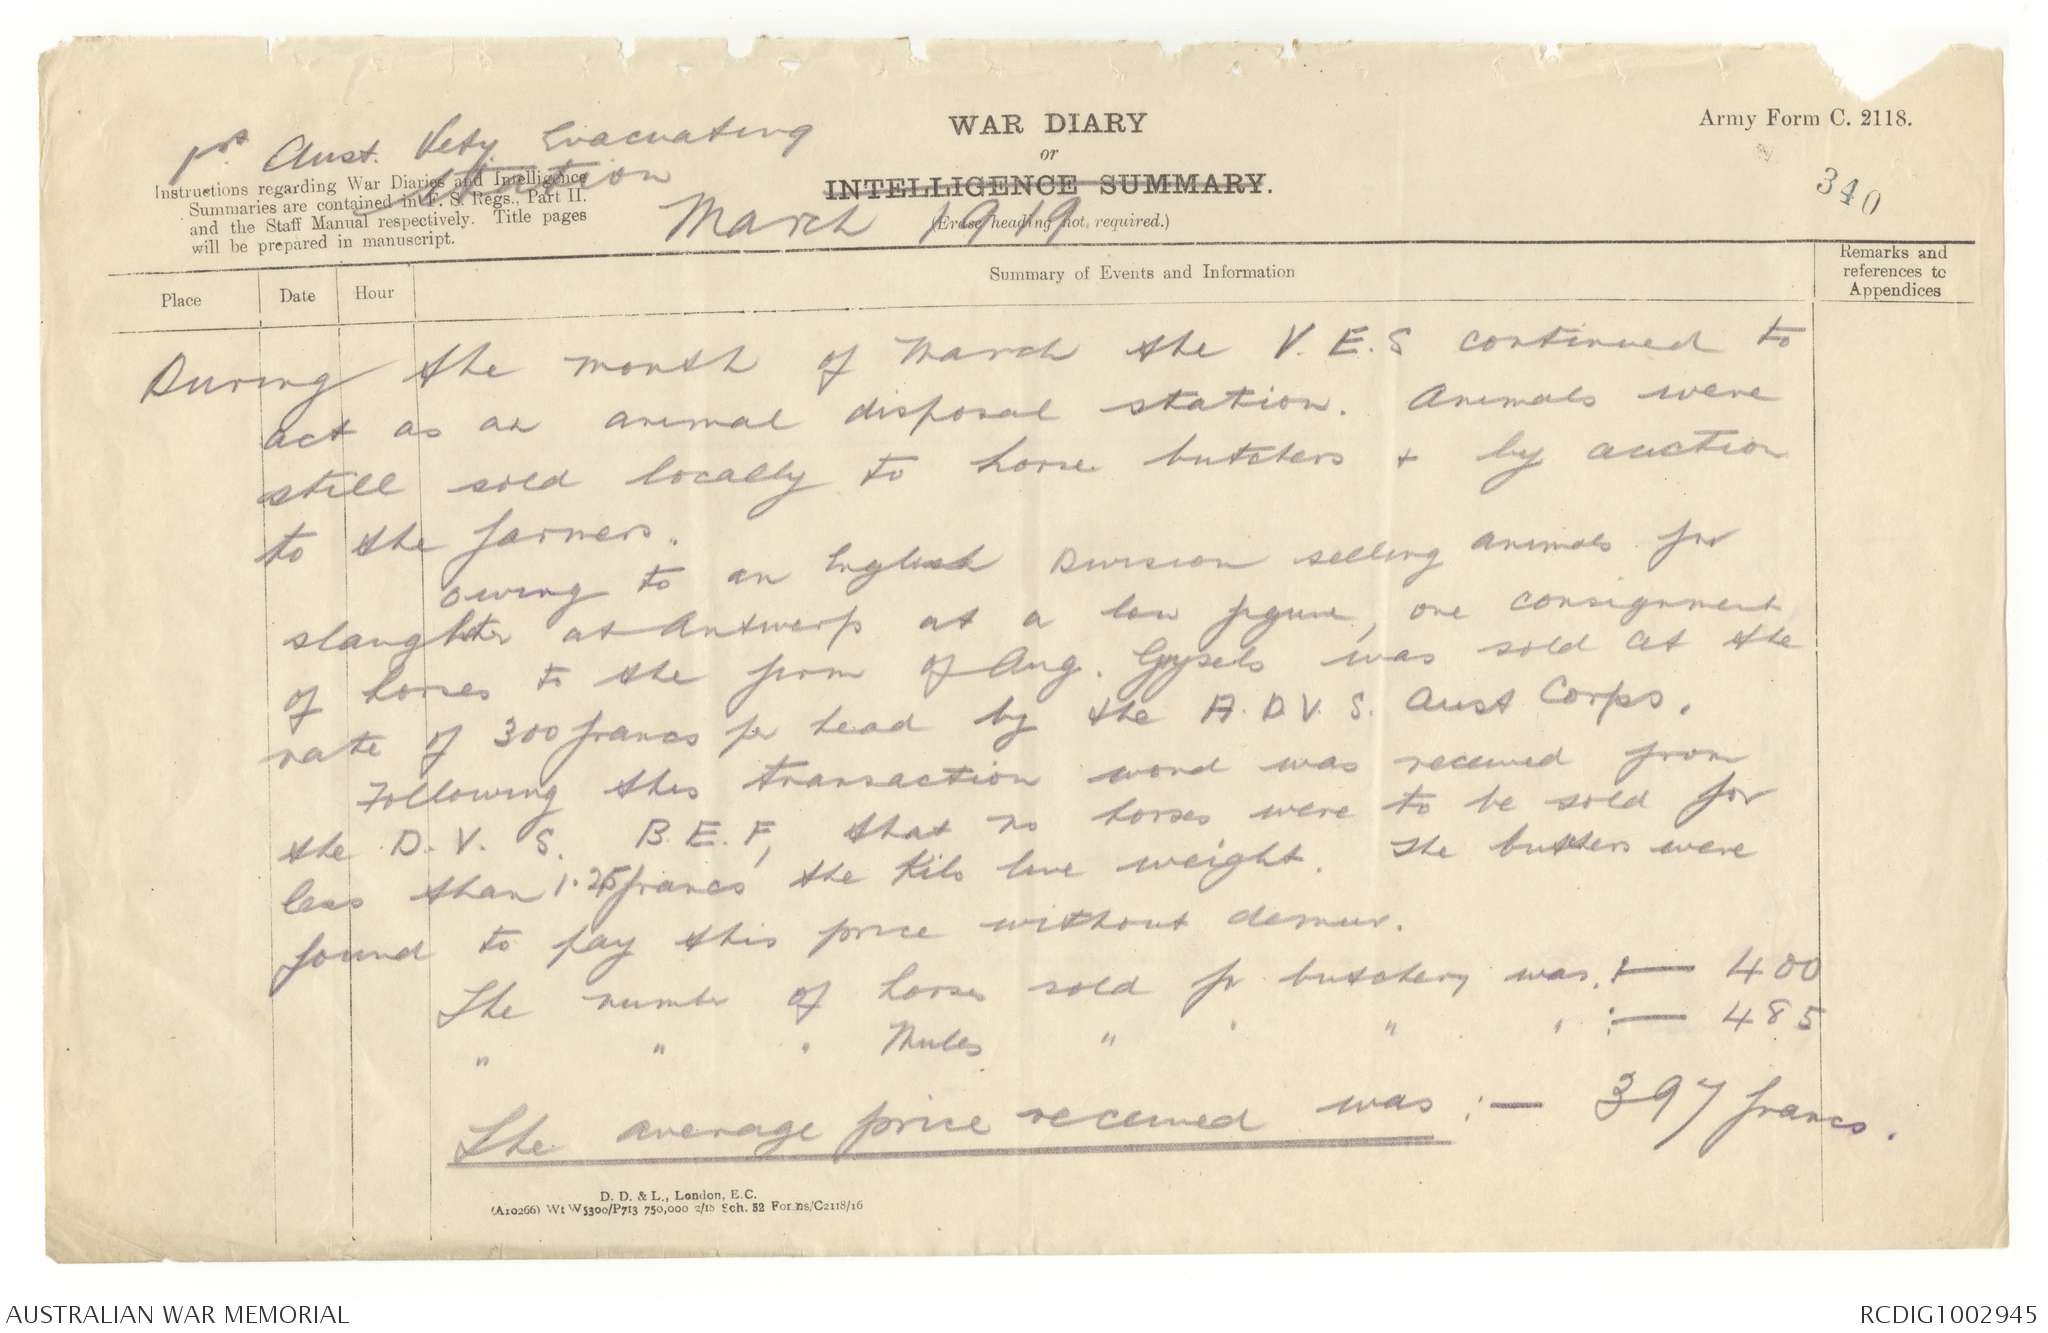 1st Aust. Vety. Evacuating
Station
WAR DIARY
or
INTELLIGENCE SUMMARY.
(Erase heading not required.)
March 1919
Army Form C. 2118.
340
Instructions regarding War Diaries and Intelligence
Summaries are contained in F. S. Regs., Part II.
and the Staff Manual respectively. Title pages
will be prepared in manuscript.
Place
Date
Hour
Summary of Events and Information
Remarks and
references to
Appendices
During the month of March the V. E. S continued to
act as an animal disposal station. Animals were
still sold locally to horse butchers + by auction
to the farmers.
Owing to an English Division selling animals for
slaughter at Antwerp at a low figure, one consignment
of horses to the firm of Aug. Gysels was sold at the
rate of 300 francs per head by the A. D. V. S. Aust Corps.
Following this transaction word was received from
the D. V. S. B. E. F, that no horses were to be sold for
less than 1.25 francs the Kilo live weight. The butchers were
found to pay this price without demur.
The number of horses sold for butchery was :— 400
" " " Mules " " " " :— 485
The average price received was :— 397 francs.
D. D. & L., London, E.C.
(A10266) Wt W5300/P713 750,000 2/18 Sch. 52 Forms/C2118/16
AUSTRALIAN WAR MEMORIAL
RCDIG1002945